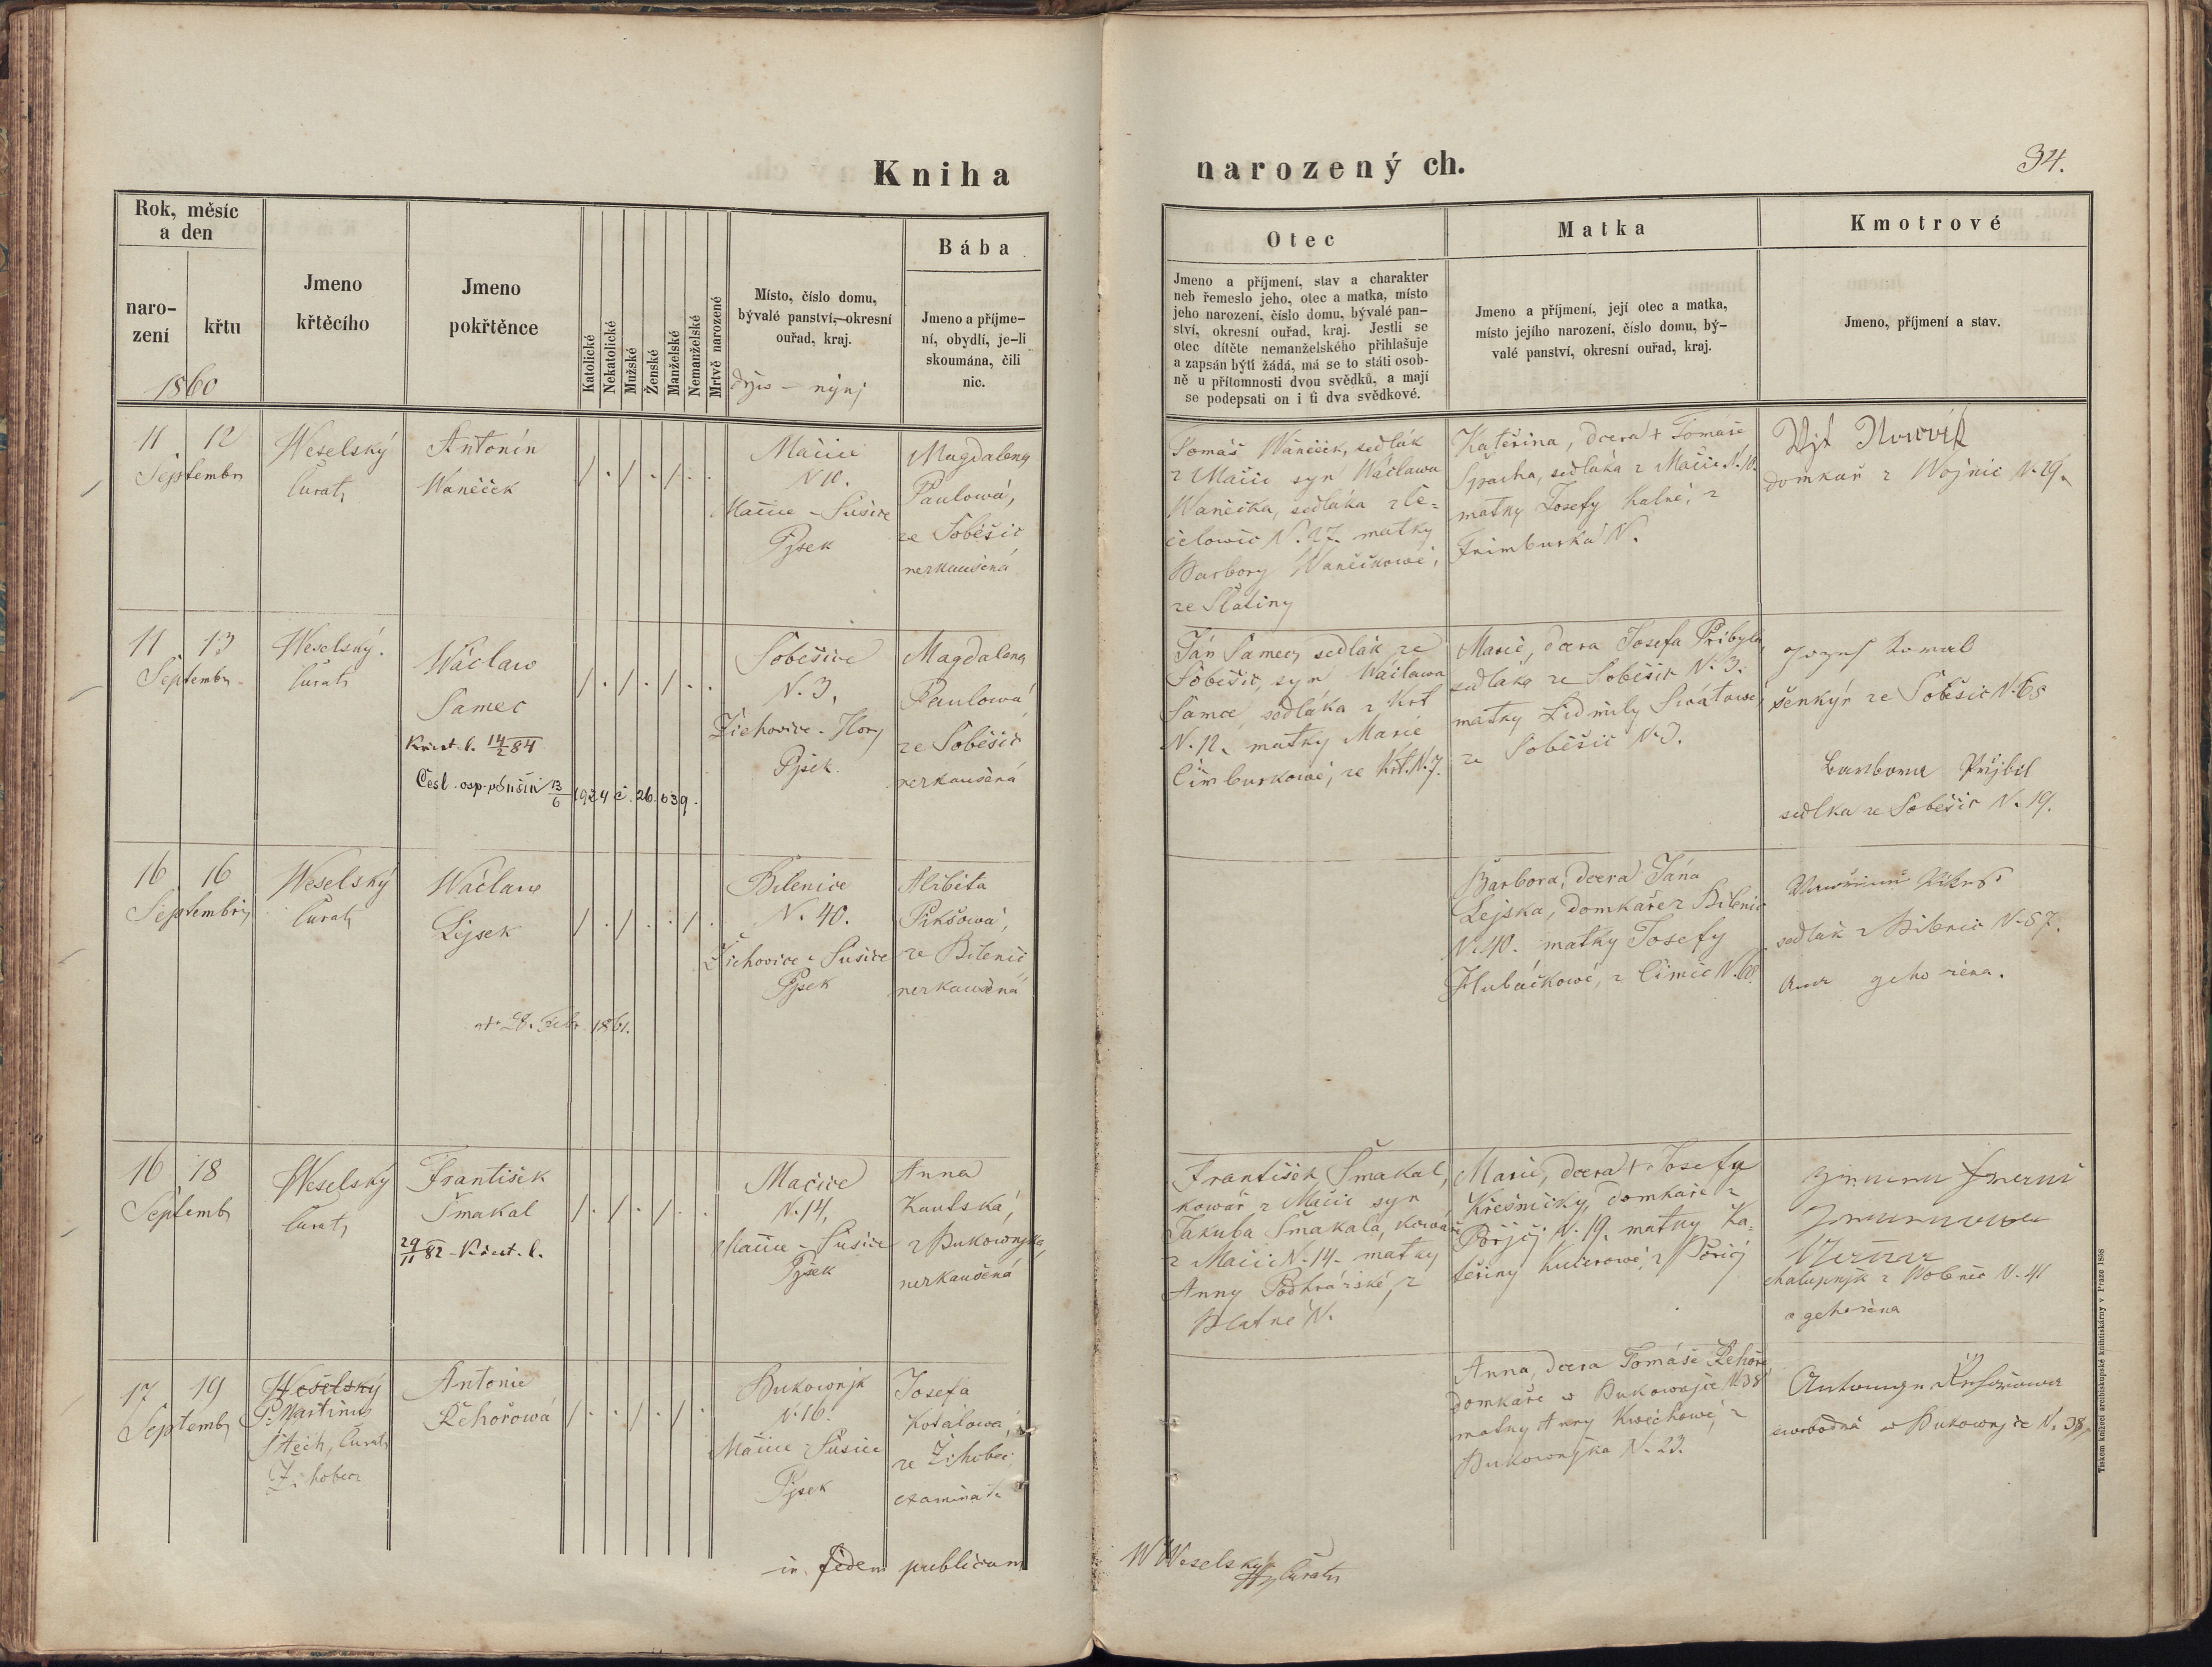 Kniha
narozený ch.
34.
Rok, měsíc
a den
naro-
zení
křtu
1860
Jmeno
křtěcího
Jmeno
pokřtěnce
Katolické
Nekatolické
Mužské
Ženské
Manželské
Nemanželské
Mrtvě narozené
Místo, číslo domu,
bývalé panství,—okresní
ouřad, kraj.
dřjw — nynj
Bába
Jmeno a příjme-
ní, obydlí, je-li
skoumána, čili
nic.
Otec
Jmeno a příjmení, stav a charakter
neb řemeslo jeho, otec a matka, místo
jeho narození, číslo domu, bývalé pan-
ství, okresní ouřad, kraj. Jestli se
otec dítěte nemanželského přihlašuje
a zapsán býti žádá, má se to státi osob-
ně u přítomnosti dvou svědků, a mají
se podepsati on i ti dva svědkové.
Matka
Jmeno a příjmení, její otec a matka,
místo jejího narození, číslo domu, bý-
valé panství, okresní ouřad, kraj.
Kmotrové
Jmeno, příjmení a stav.
11 12
Septembr
Weselský
Curat
Antonín
Waněček
Mačice
N 10.
Mačice - Sušice
Pjsek
Magdalena
Paulowá,
ze Soběšic
nezkaušená
Tomáš Waněček, sedlák
z Mačic syn Wáclawa
Waněčka, sedláka z Če=
čelowic N. 27. matky
Barbory Waněčkowé,
ze Slatiny
Kateřina, dcera † Tomáše
Spacha, sedláka z Mačic N. 10.
matky Josefy Kalné, z
Frimburka N.
Wjt
domkař z Wojnic N. 29.
11 13
Septembr
Weselský.
Curat
Wáclaw
Samec
Křest. l. 14/2 84
Česl. osp. 13/6 1924 č. 26.639.
Soběšice
N. 3,
Žichovice - Hory
Pjsek
Magdalena
Paulowá
ze Soběšic
nezkaušená
Ján Samec, sedlák ze
Soběšic, syn Wáclawa
Samce, sedláka z Krt
N. 12. matky Marie
Cimburkowé, ze Krt. N. 7.
Marie, dcera Josefa Přibyla
sedláka ze Soběšic N. 3.
matky Lidmily
ze Soběšic N. 3.
Jozef
šenkýř ze Soběšic N. 65
Barbora Přjbil
sedlka ze Soběšic N. 19.
16 16
Septembris
Weselský
Curat
Wáclaw
Lejsek
28. Febr. 1861.
Bilenice
N. 40.
Žichovice - Sušice
Pjsek
Alžběta
Pikšowá,
ze Bilenic
nezkaušená
Barbora, dcera Jána
Lejska, domkaře z Bilenic
N. 40. matky Josefy
Hlubáčkowé, z Čimic N. 68
sedlák z Bilenic N. 57.
geho žena.
16 18
Septemb
Weselský
Curat
František
Šmakal
29/11 82 - Křest. l.
Mačice
N. 14,
Mačice - Sušice
Pjsek
Anna
Kautská,
z Bukownjka,
nezkaušená
František Šmakal,
kowář z Mačic syn
Jakuba Šmakala, kowáře
z Mačic N. 14. matky
Anny Podhrázské, z
Blatné N.
Marie, dcera † Josefa
Křešničky, domkaře z
Pořjčj N. 19. matky Ka=
teřiny Kučerowé, z Pořičj
chalupnjk z Wolenic N. 41
a geho žena
17 19
Septemb
Weselský
P. Martinus
Štech, Curat
Žihobec
Antonie
Řehořowá
Bukownjk
N. 16.
Mačice - Sušice
Pjsek
Josefa
Košálowá,
ze Žihobec,
examinata
Anna, dcera Tomáše Řehoře
domkaře w Bukownjce N. 38
matky Anny Kwěchowé, z
Bukownjka N. 23.
Antonyn Řehořowa
swobodná w Bukownjce N. 38,
in fidem publicam
W Weselský Curatus
Tiskem knížecí arcibiskupské knihtiskárny v Praze 1858